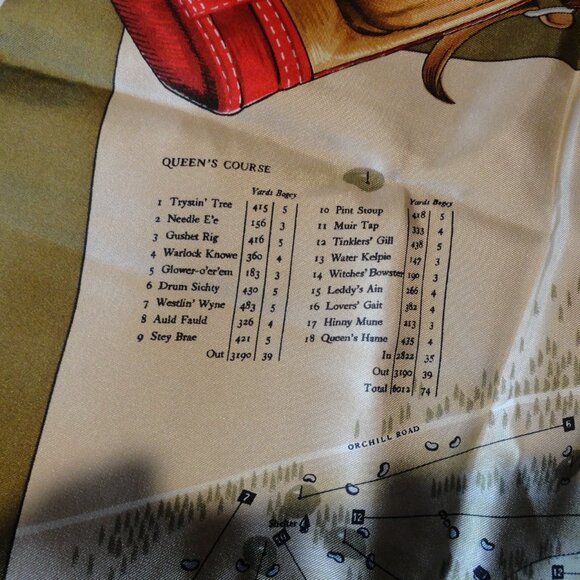 QUEEN'S COURSE
Yards Bogey
1 Trystin' Tree 415 5
2 Needle E'e 156 3
3 Gushet Rig 416 5
4 Warlock Knowe 360 4
5 Glower-o'er'em 183 3
6 Drum Sichty 430 5
7 Westlin' Wyne 483 5
8 Auld Fauld 326 4
9 Stey Brae 421 5
Out 3190 39
Yards Bogey
10 Pint Stoup 418 5
11 Muir Tap 333 4
12 Tinklers' Gill 438 5
13 Water Kelpie 147 3
14 Witches' Bowster 190 3
15 Leddy's Ain 266 4
16 Lovers' Gait 382 4
17 Hinny Mune 213 3
18 Queen's Hame 435 4
In 2822 35
Out 3190 39
Total 6012 74
ORCHILL ROAD
6
7
12
Shelter
11
12